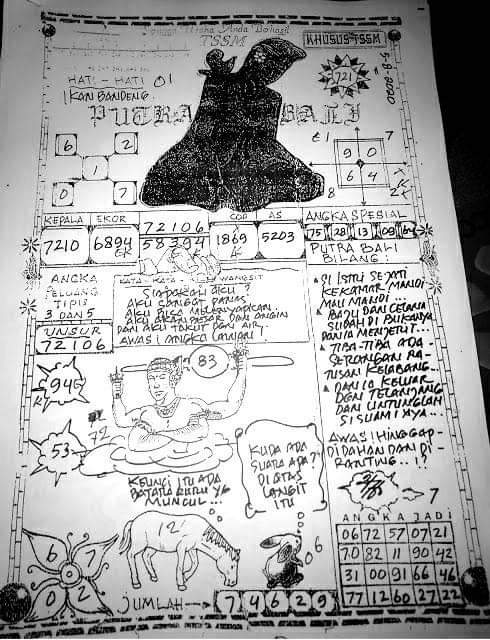 Usaha Anda Berhasil
TSSM
KHUSUS-TSSM
5-8-2020
721
HATI-HATI 01
IKAN BANDENG
PUTRA BALI
6 2
1
0 7
7
9 0
6 4
8
KEPALA EKOR 72106 COP AS ANGKA SPESIAL
7210 6894 58394 1869 5203 75 28 13 09 64
PUTRA BALI
BILANG:
ANGKA
PELUANG
TIPIS
3 DAN 5
UNSUR
72106
KATA-KATA WANGSIT
SIAPAKAH AKU?
AKU SANGAT PANAS
AKU BISA MELENYAPKAN
AKU AKAN BESAR DAN ANGIN
DAN AKU TAKUT DAN AIR
AWAS! ANGKA LAWAN!
SI ISTRI SEJATI
KEKAMAR MANDI
MAU MANDI...
BAJU DAN CELANA
SUDAH DI BUKANYA
DAN IA MENJERIT...
TIBA-TIBA ADA
SERONGAN RA-
TUSAN KELABANG...
DAN IA KELUAR
DGN TELANJANG
DAN UNTUNGLAH
SI SUAMI AYA...
AWAS! HINGGAP
DIDAHAN DAN DI
RANTING..!?
83
94
72
53
KEUNCI ITU ADA
BATARA GURU YG
MUNCUL...
KUDA ADA
SUATU APA?
DI ATAS
LANGIT
ITU
7
12
06
6 7
0 2
ANGKA JADI
06 72 57 07 21
70 82 11 90 42
31 00 91 66 46
77 12 60 27 22
JUMLAH 7 4 6 2 9